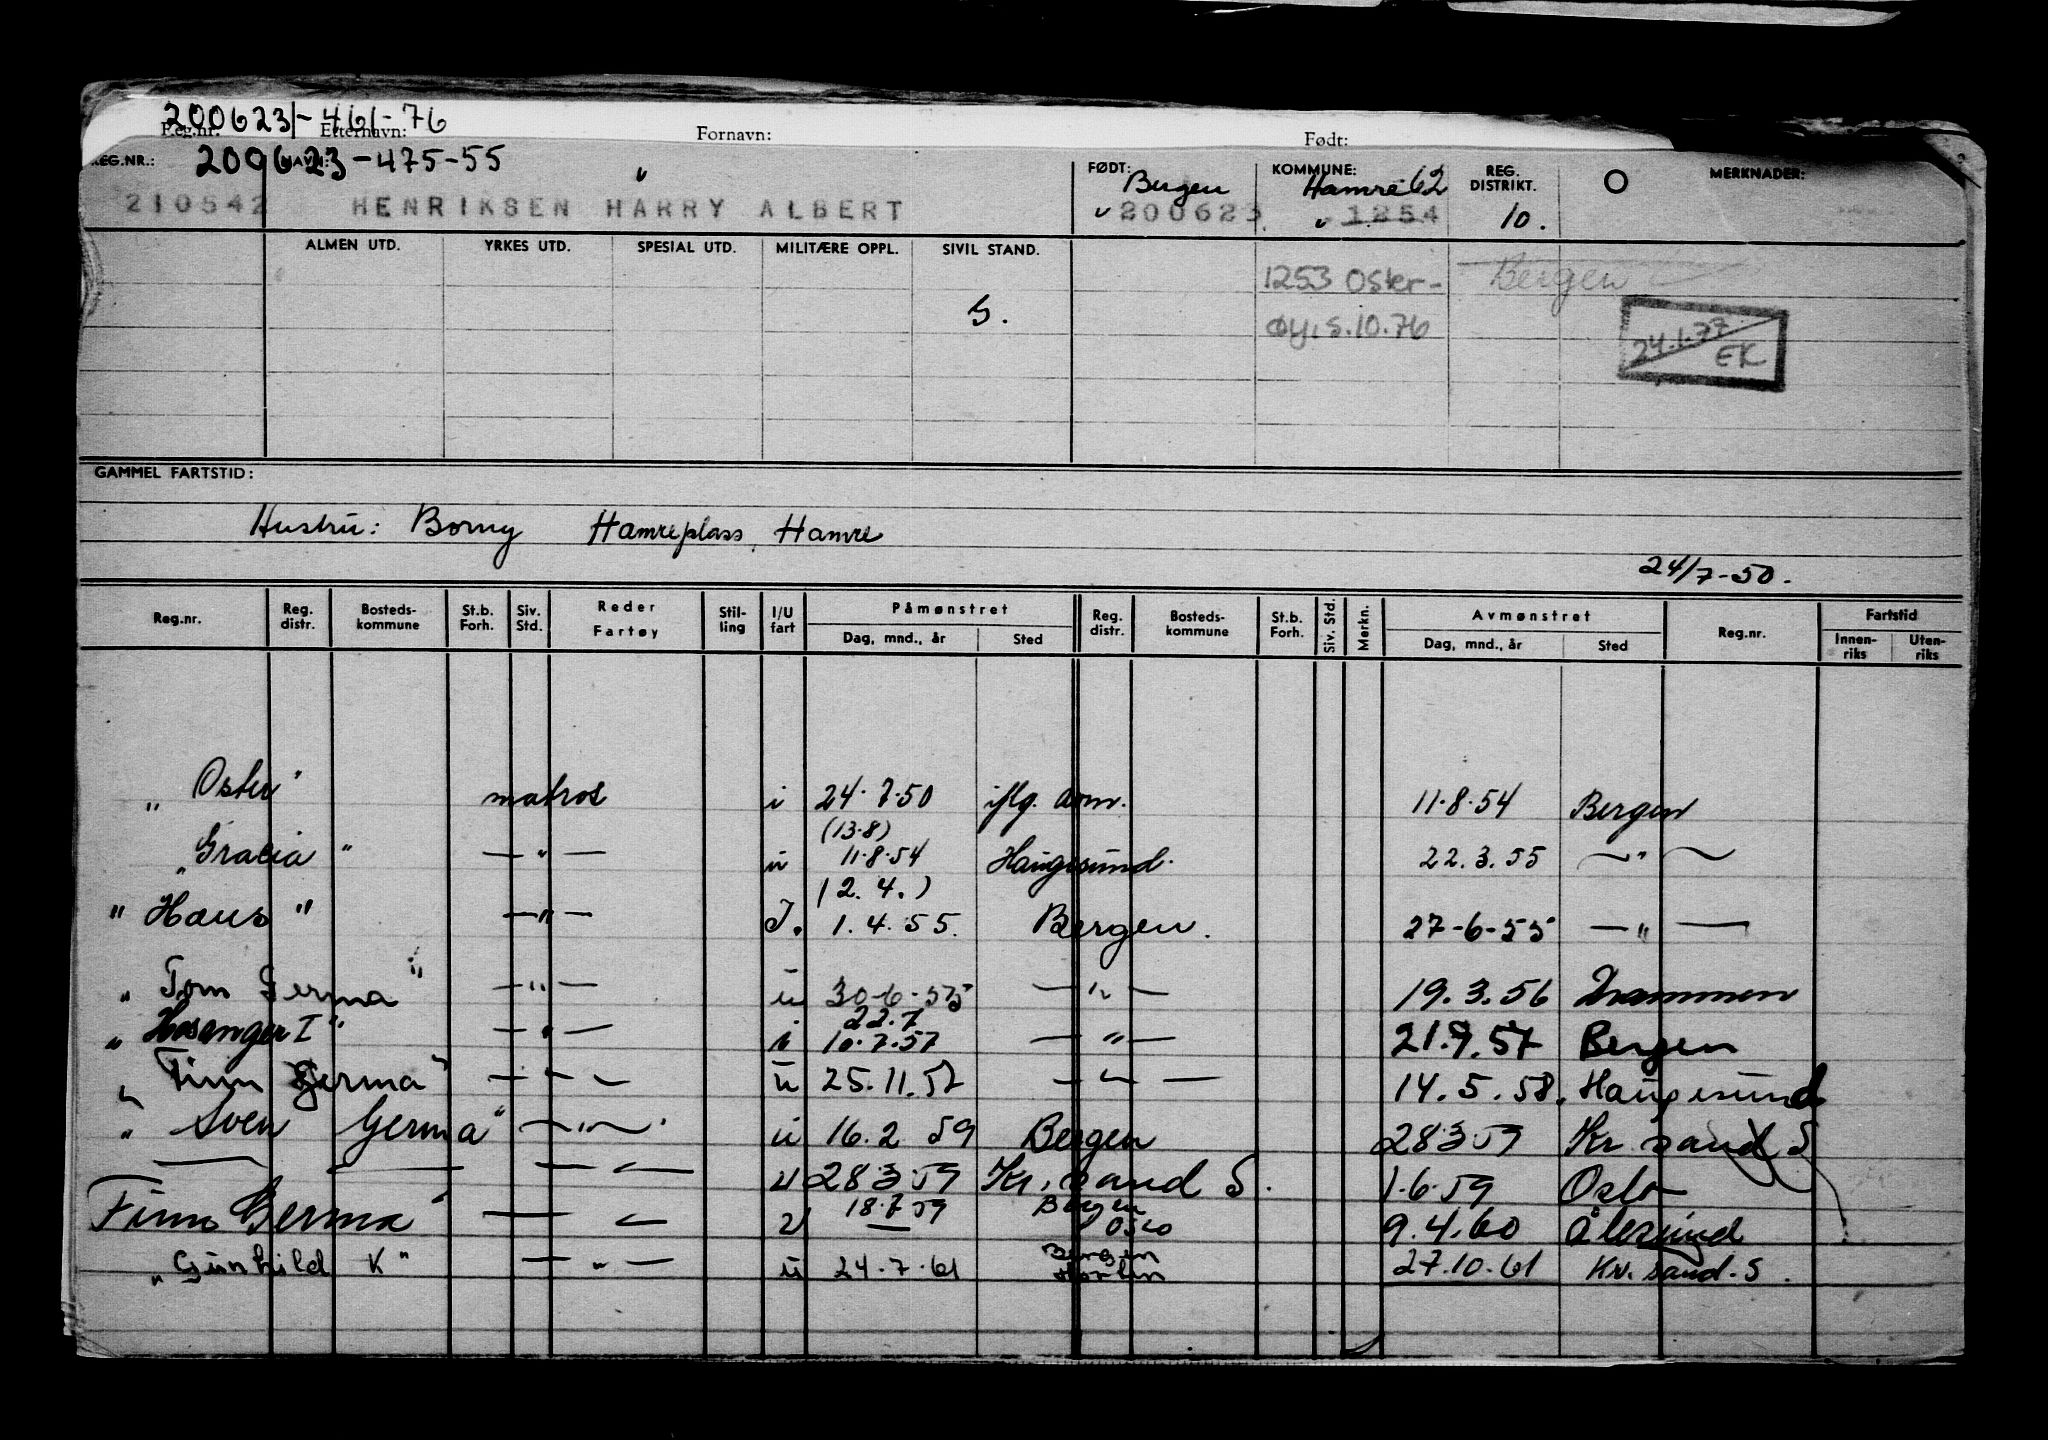 200623-461-76
Reg.nr. Etternavn: Fornavn: Født:
REG.NR.: 200623-475-55 NAVN: " FØDT: Bergen KOMMUNE: Hamre 62 REG. DISTRIKT. O MERKNADER:
210542 HENRIKSEN HARRY ALBERT " 200623 " 1254 10.
ALMEN UTD. YRKES UTD. SPESIAL UTD. MILITÆRE OPPL. SIVIL STAND.
1253 Oster- Bergen
G. øy, 5.10.76 24.1.77 EK
GAMMEL FARTSTID:
Hustru: Borny Hamreplass, Hamre
24/7-50.
Reg.nr. Reg. distr. Bosteds-kommune St.b. Forh. Siv. Std. Reder Fartøy Stil-ling I/U fart Påmønstret Reg. distr. Bosteds-kommune St.b. Forh. Siv. Std. Merkn. Avmønstret Reg.nr. Fartstid
Dag, mnd., år Sted Dag, mnd., år Sted Innen-riks Uten-riks
"Oster" matros i 24.7.50 iflg. dom. 11.8.54 Bergen
(13.8)
"Gracia" — " — u 11.8.54 Haugesund. 22.3.55 — " —
(2.4.)
"Haus" — " — I. 1.4.55. Bergen. 27-6-55 — " —
"Tom Germa" — " — u 30-6-55 — " — 19.3.56 Drammen
22.7
"Hosanger I" — " — i 10.7.57 — " — 21.9.57 Bergen
"Finn Germa" — " — u 25.11.57 — " — 14.5.58. Haugesund
"Sven Germa" — " — u 16.2 59 Bergen 28359 Kr. sand S
— — — — u 28359 Kr. sand S. 1.6.59 Oslo
18.7.59 Bergen
Finn Germa" — — u — Oslo 9.4.60 Ålesund
"Gunhild K" — " — u 24.7.61 Bergen 27.10.61 Kr. sand. S.